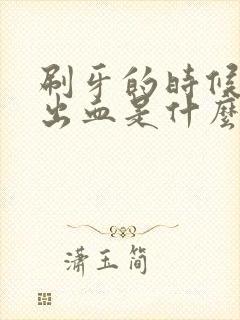 刷牙的時候
出血是什麼
瀟玉简